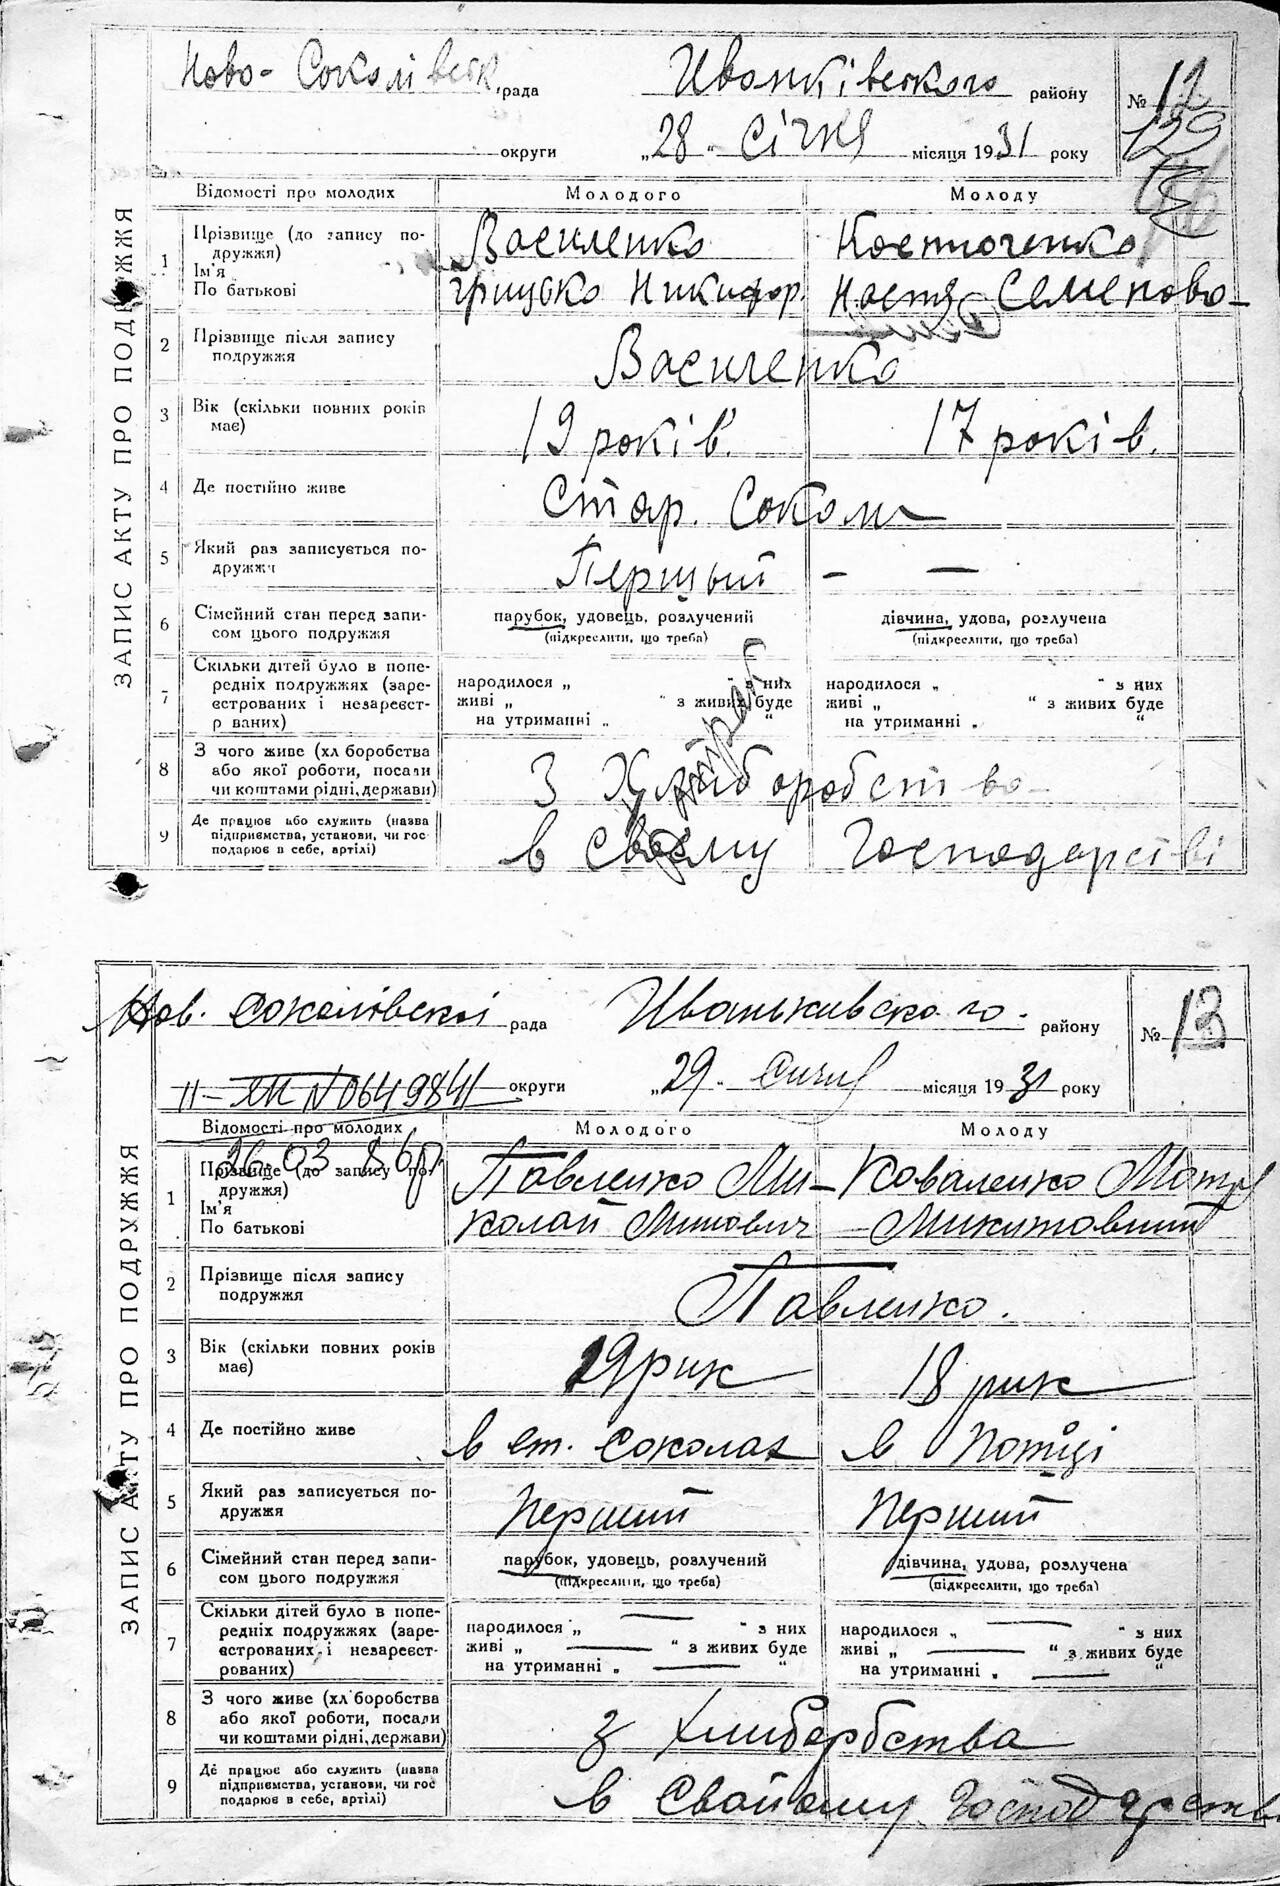 Ново-Соколівськ. рада Иванківського району № 12
129
округи „28" Січня місяця 1931 року
ЗАПИС АКТУ ПРО ПОДРУЖЖЯ
Відомості про молодих Молодого Молоду
1 Прізвище (до запису по-
дружжя)
Ім'я
По батькові
Василенко Костюченко
Грицько Никифор. Настя Семеново-
2 Прізвище після запису
подружжя
Василенко
3 Вік (скільки повних років
має)
19 років. 17 років.
4 Де постійно живе Стар. Соколи
5 Який раз записується по-
дружжя
Першый — —
6 Сімейний стан перед запи-
сом цього подружжя
парубок, удовець, розлучений дівчина, удова, розлучена
(підкреслити, що треба) (підкреслити, що треба)
7 Скільки дітей було в попе-
редніх подружжях (заре-
єстрованих і незареєст-
р ваних)
народилося „ " з них народилося „ " з них
живі „ " з живих буде живі „ " з живих буде
на утриманні „ " на утриманні „ "
8 З чого живе (хл боробства
або якої роботи, посади
чи коштами рідні, держави)
З Хлиборобство-
9 Де працює або служить (назва
підприємства, установи, чи гос
подарює в себе, артілі)
в своєму Господарстві
Нов. Соколівской рада Иванькивского. району № 13
II-ЯМ №0649841 округи „29. Сичня місяця 1931 року
ЗАПИС АКТУ ПРО ПОДРУЖЖЯ
Відомості про молодих Молодого Молоду
1 Прізвище (до запису по-
дружжя)
Ім'я
По батькові
Павленко Ми- Коваленко Мотря
колай Минович Микитовний
2 Прізвище після запису
подружжя
Павленко.
3 Вік (скільки повних років
має)
19 рик 18 рик
4 Де постійно живе в ст. Соколах в
5 Який раз записується по-
дружжя
Перший Перший
6 Сімейний стан перед запи-
сом цього подружжя
парубок, удовець, розлучений дівчина, удова, розлучена
(підкреслити, що треба) (підкреслити, що треба)
7 Скільки дітей було в попе-
редніх подружжях (заре-
єстрованих і незареєст-
рованих)
народилося „ — " з них народилося „ — " з них
живі „ — " з живих буде живі „ — " з живих буде
на утриманні „ — " на утриманні „ — "
8 З чого живе (хл боробства
або якої роботи, посади
чи коштами рідні, держави)
з хлиборбства
9 Де працює або служить (назва
підприємства, установи, чи гос
подарює в себе, артілі)
в Свойому Господарстві